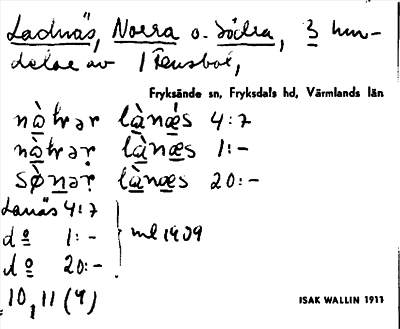 Ladnäs, Norra o. Södra, 3 hun-
delar av 1 Rensbol,
Fryksände sn, Fryksdals hd, Värmlands län
nòhrər lànǽs 4:7
nòhrər lànæs 1:-
sønər lànæs 20:-
Lanäs 4:7
do 1:-
do 20:-
ml 1909
10, 11 (9)
ISAK WALLIN 1911